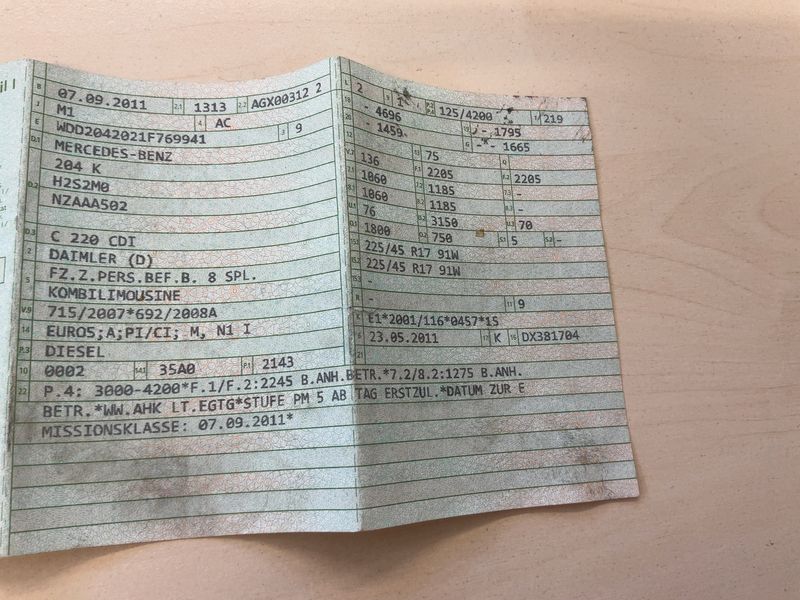 il I
B 07.09.2011 2.1 1313 2.2 AGX00312 2
J M1 4 AC
E WDD2042021F769941 3 9
D.1 MERCEDES-BENZ
204 K
D.2 H2S2M0
NZAAA502
D.3 C 220 CDI
2 DAIMLER (D)
5 FZ.Z.PERS.BEF.B. 8 SPL.
KOMBILIMOUSINE
V.9 715/2007*692/2008A
14 EURO5;A;PI/CI; M, N1 I
P.3 DIESEL
10 0002 14.1 35A0 P.1 2143
22 P.4: 3000-4200*F.1/F.2:2245 B.ANH.BETR.*7.2/8.2:1275 B.ANH.
BETR.*WW.AHK LT.EGTG*STUFE PM 5 AB TAG ERSTZUL.*DATUM ZUR E
MISSIONSKLASSE: 07.09.2011*
L 2 9 1 P.2 P.4 125/4200 T 219
18 - 4696 19 - 1795
20 - 1459 G - 1665
12
V.7 136 13 75 Q
7.1 1060 F.1 2205 F.2 2205
8.1 1060 7.2 1185 7.3 -
U.1 76 8.2 1185 8.3 -
O.1 1800 U.2 3150 U.3 70
O.2 750 S.1 5 S.2 -
15.1 225/45 R17 91W
15.2 225/45 R17 91W
15.3 -
R - 11 9
K E1*2001/116*0457*15
6 23.05.2011 17 K 16 DX381704
21